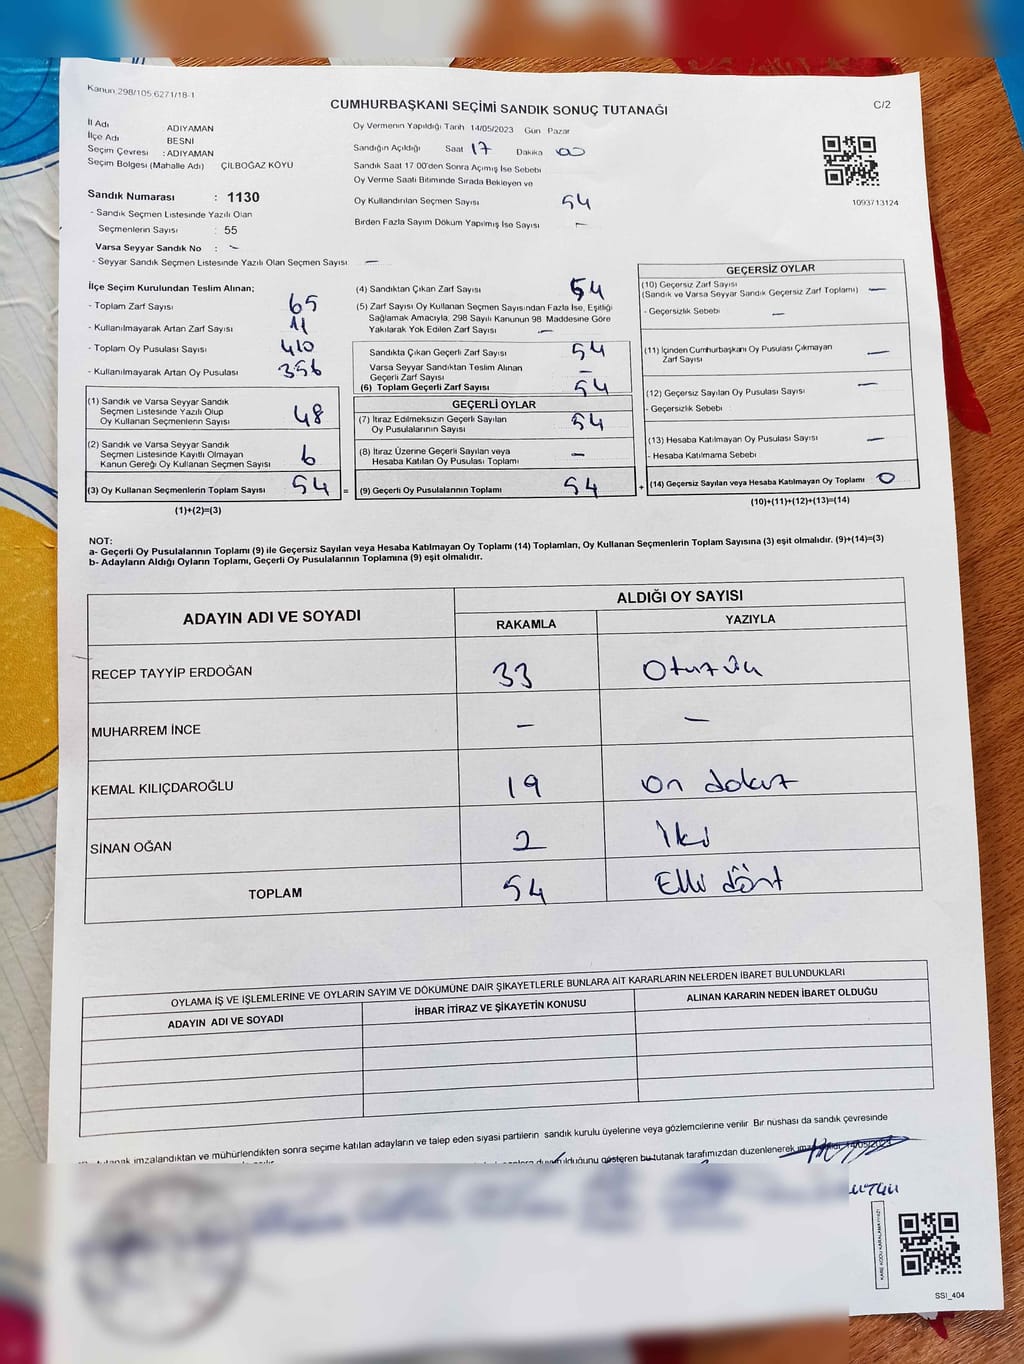 Kanun 298/105,6271/18-1
CUMHURBAŞKANI SEÇİMİ SANDIK SONUÇ TUTANAĞI
C/2
İl Adı ADIYAMAN
İlçe Adı BESNİ
Seçim Çevresi : ADIYAMAN
Seçim Bölgesi (Mahalle Adı) ÇİLBOĞAZ KÖYÜ
Sandık Numarası : 1130
- Sandık Seçmen Listesinde Yazılı Olan
Seçmenlerin Sayısı : 55
Varsa Seyyar Sandık No : -
- Seyyar Sandık Seçmen Listesinde Yazılı Olan Seçmen Sayısı -
Oy Vermenin Yapıldığı Tarih 14/05/2023 Gün Pazar
Sandığın Açıldığı Saat 17 Dakika 00
Sandık Saat 17 00'den Sonra Açımış İse Sebebi
Oy Verme Saati Bitiminde Sırada Bekleyen ve
Oy Kullandırılan Seçmen Sayısı 54
Birden Fazla Sayım Döküm Yapılmış İse Sayısı -
1093713124
İlçe Seçim Kurulundan Teslim Alınan;
- Toplam Zarf Sayısı 65
- Kullanılmayarak Artan Zarf Sayısı 11
- Toplam Oy Pusulası Sayısı 410
- Kullanılmayarak Artan Oy Pusulası 356
(1) Sandık ve Varsa Seyyar Sandık
Seçmen Listesinde Yazılı Olup
Oy Kullanan Seçmenlerin Sayısı 48
(2) Sandık ve Varsa Seyyar Sandık
Seçmen Listesinde Kayıtlı Olmayan
Kanun Gereği Oy Kullanan Seçmen Sayısı 6
(3) Oy Kullanan Seçmenlerin Toplam Sayısı 54 =
(1)+(2)=(3)
(4) Sandıktan Çıkan Zarf Sayısı 54
(5) Zarf Sayısı Oy Kullanan Seçmen Sayısından Fazla İse, Eşitliği
Sağlamak Amacıyla, 298 Sayılı Kanunun 98 Maddesine Göre
Yakılarak Yok Edilen Zarf Sayısı -
Sandıkta Çıkan Geçerli Zarf Sayısı 54
Varsa Seyyar Sandıktan Teslim Alınan
Geçerli Zarf Sayısı -
(6) Toplam Geçerli Zarf Sayısı 54
GEÇERLİ OYLAR
(7) İtiraz Edilmeksizin Geçerli Sayılan
Oy Pusulalarının Sayısı 54
(8) İtiraz Üzerine Geçerli Sayılan veya
Hesaba Katılan Oy Pusulası Toplamı -
(9) Geçerli Oy Pusulalarının Toplamı 54 +
GEÇERSİZ OYLAR
(10) Geçersiz Zarf Sayısı
(Sandık ve Varsa Seyyar Sandık Geçersiz Zarf Toplamı) -
- Geçersizlik Sebebi -
(11) İçinden Cumhurbaşkanı Oy Pusulası Çıkmayan
Zarf Sayısı -
(12) Geçersiz Sayılan Oy Pusulası Sayısı -
- Geçersizlik Sebebi
(13) Hesaba Katılmayan Oy Pusulası Sayısı -
- Hesaba Katılmama Sebebi
(14) Geçersiz Sayılan veya Hesaba Katılmayan Oy Toplamı 0
(10)+(11)+(12)+(13)=(14)
NOT:
a- Geçerli Oy Pusulalarının Toplamı (9) ile Geçersiz Sayılan veya Hesaba Katılmayan Oy Toplamı (14) Toplamları, Oy Kullanan Seçmenlerin Toplam Sayısına (3) eşit olmalıdır. (9)+(14)=(3)
b- Adayların Aldığı Oyların Toplamı, Geçerli Oy Pusulalarının Toplamına (9) eşit olmalıdır.
ADAYIN ADI VE SOYADI ALDIĞI OY SAYISI
RAKAMLA YAZIYLA
RECEP TAYYİP ERDOĞAN 33 Otuz üç
MUHARREM İNCE - -
KEMAL KILIÇDAROĞLU 19 on dokuz
SİNAN OĞAN 2 İki
TOPLAM 54 Elli dört
OYLAMA İŞ VE İŞLEMLERİNE VE OYLARIN SAYIM VE DÖKÜMÜNE DAİR ŞİKAYETLERLE BUNLARA AİT KARARLARIN NELERDEN İBARET BULUNDUKLARI
ADAYIN ADI VE SOYADI İHBAR İTİRAZ VE ŞİKAYETİN KONUSU ALINAN KARARIN NEDEN İBARET OLDUĞU
tutanak imzalandıktan ve mühürlendikten sonra seçime katılan adayların ve talep eden siyasi partilerin sandık kurulu üyelerine veya gözlemcilerine verilir Bir nüshası da sandık çevresinde
olduğunu gösteren bu tutanak tarafımızdan düzenlenerek 14/05/2023
KARE KODU KARALAMAYINIZ!
SSI_404